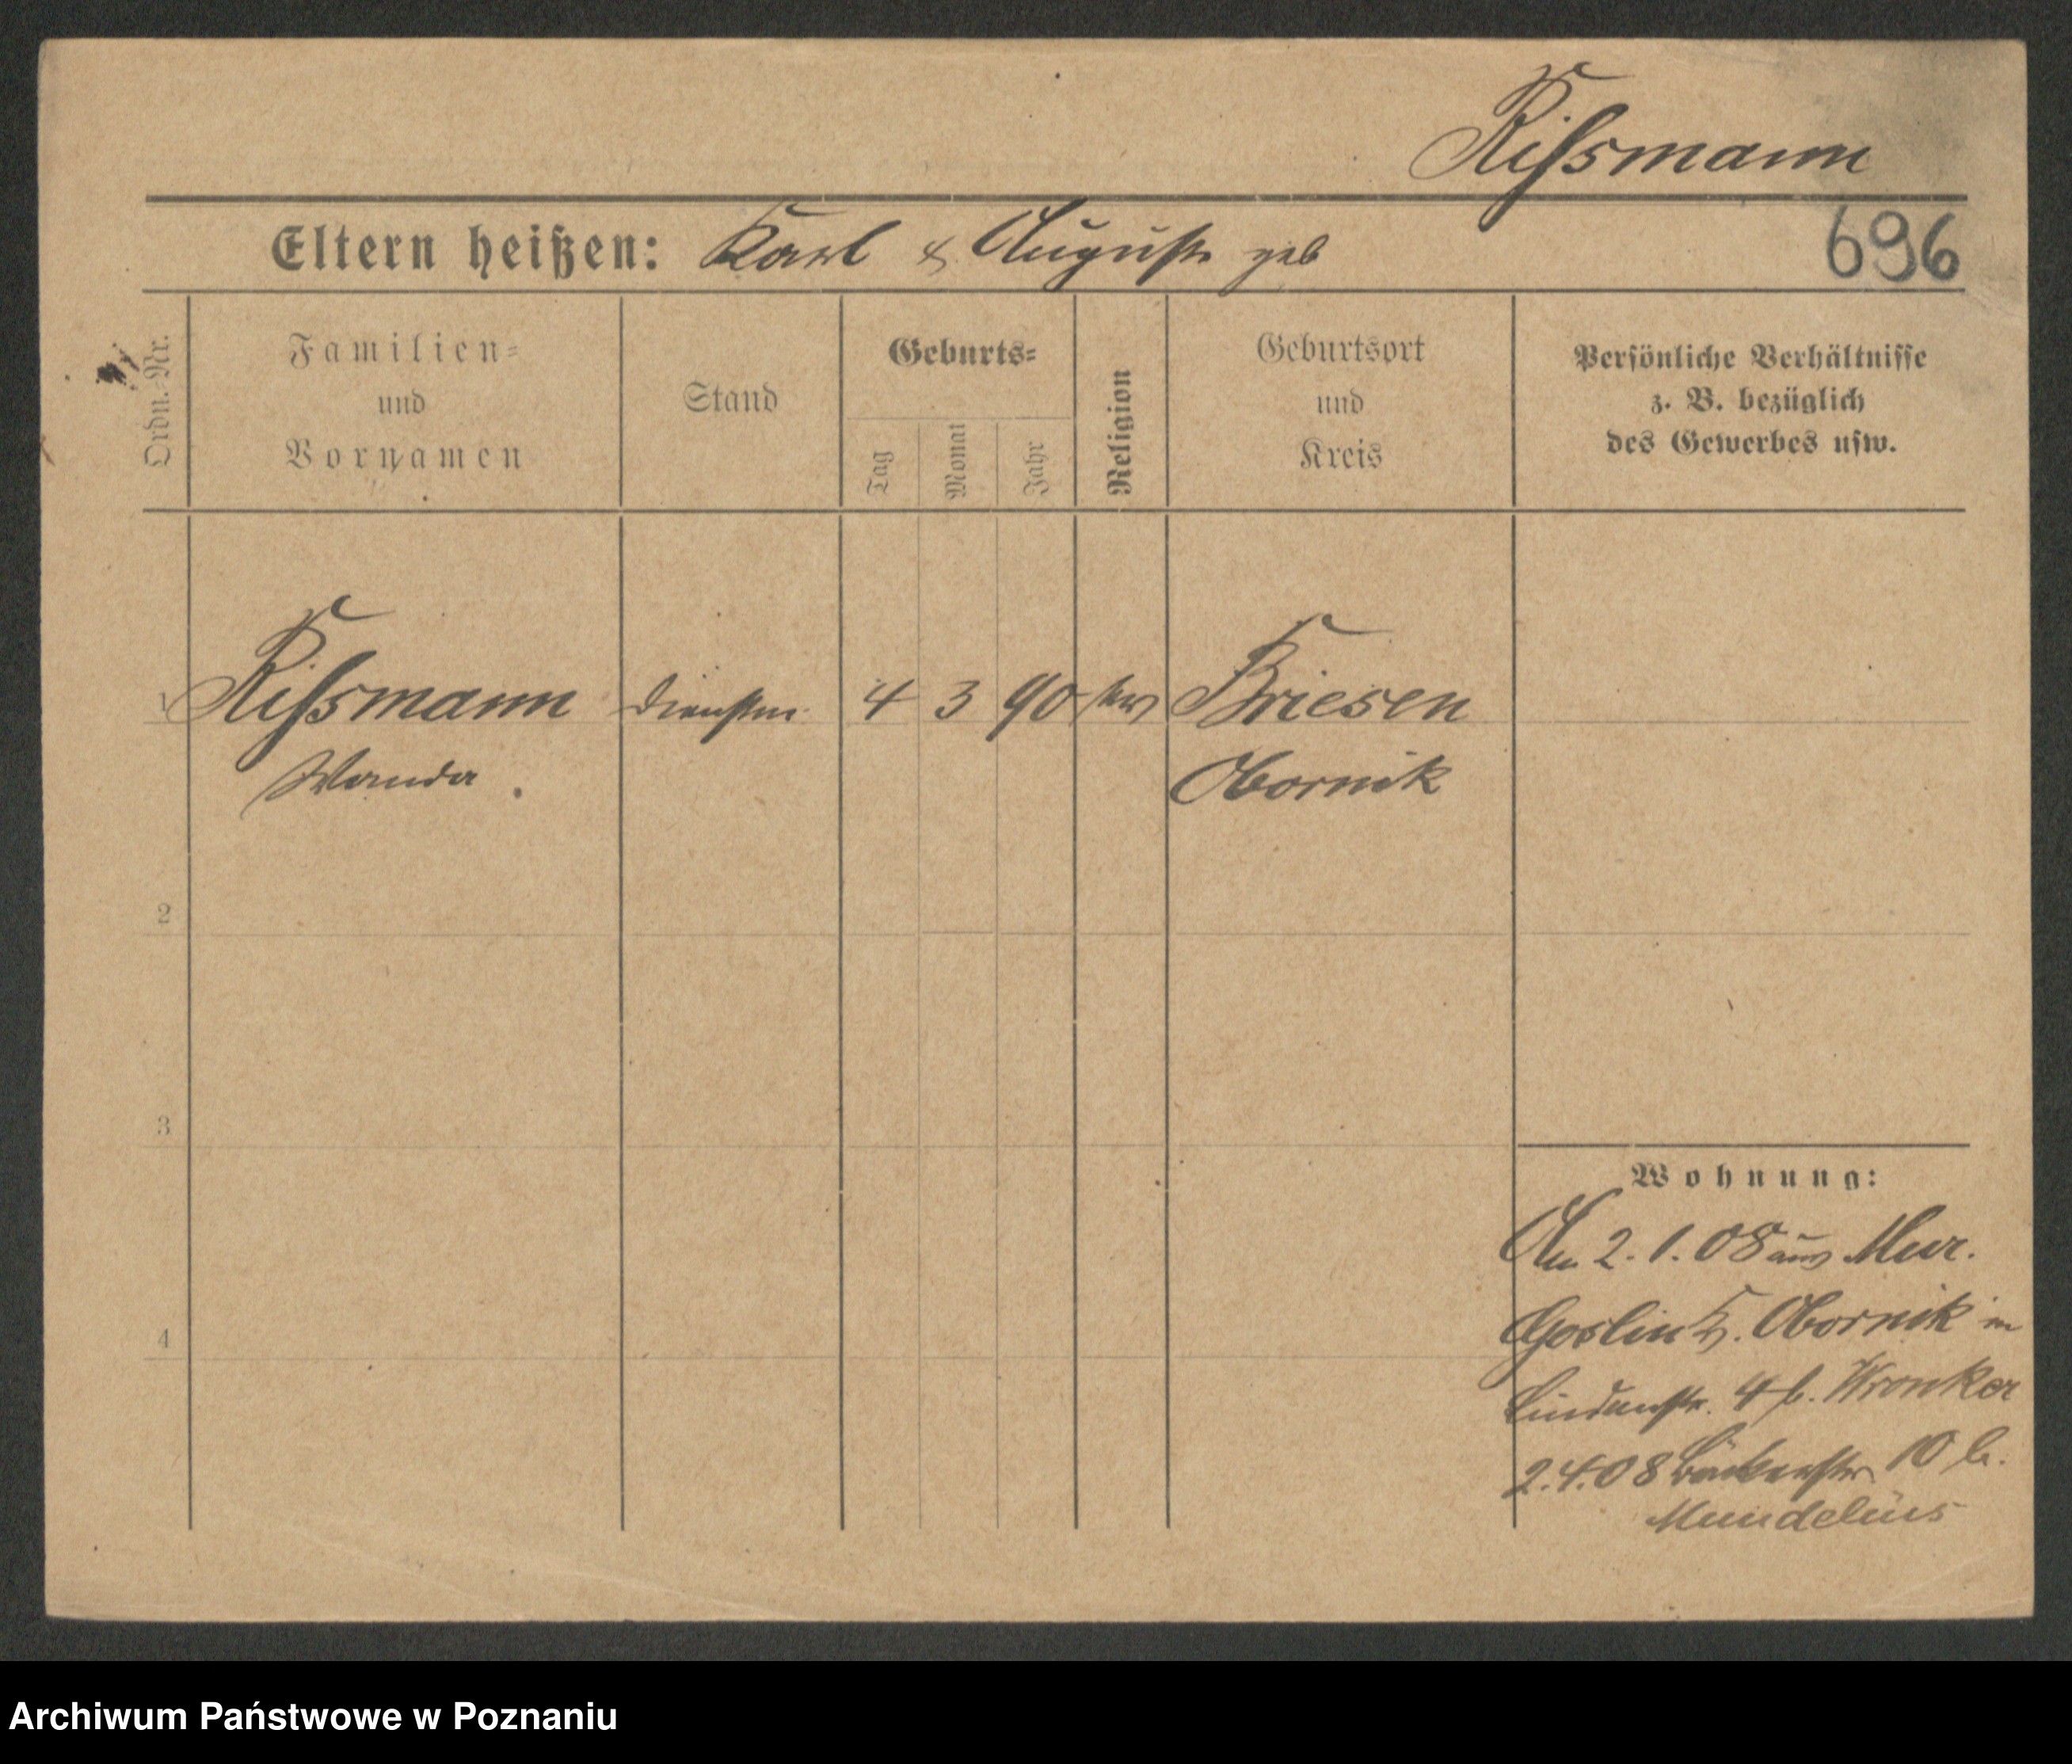 Rissmann
Eltern heißen: Karl & Auguste geb
696
Ordn.-Nr.
Familien-
und
Vornamen
Stand
Geburts-
Tag
Monat
Jahr
Religion
Geburtsort
und
Kreis
Persönliche Verhältnisse
z. B. bezüglich
des Gewerbes usw.
1 Rissmann 4 3 90 Briesen
Wanda Obornik
2
3
4
Wohnung:
Am 2.1.08 aus Mur.
Goslin K. Obornik in
Lindenstr. 4 b. Wronker
2.4.08 Bäckerstr. 10 b.
Mundelius
Archiwum Państwowe w Poznaniu